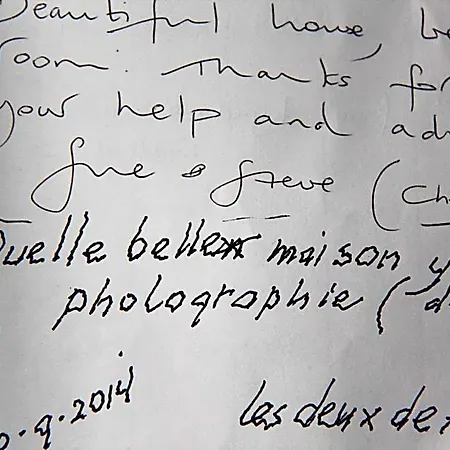 Beautiful house, be
room. Thanks for
your help and ad
Sue & Steve (Ch
Quelle belle maison y
photographie (d
9.2014
Les deux de